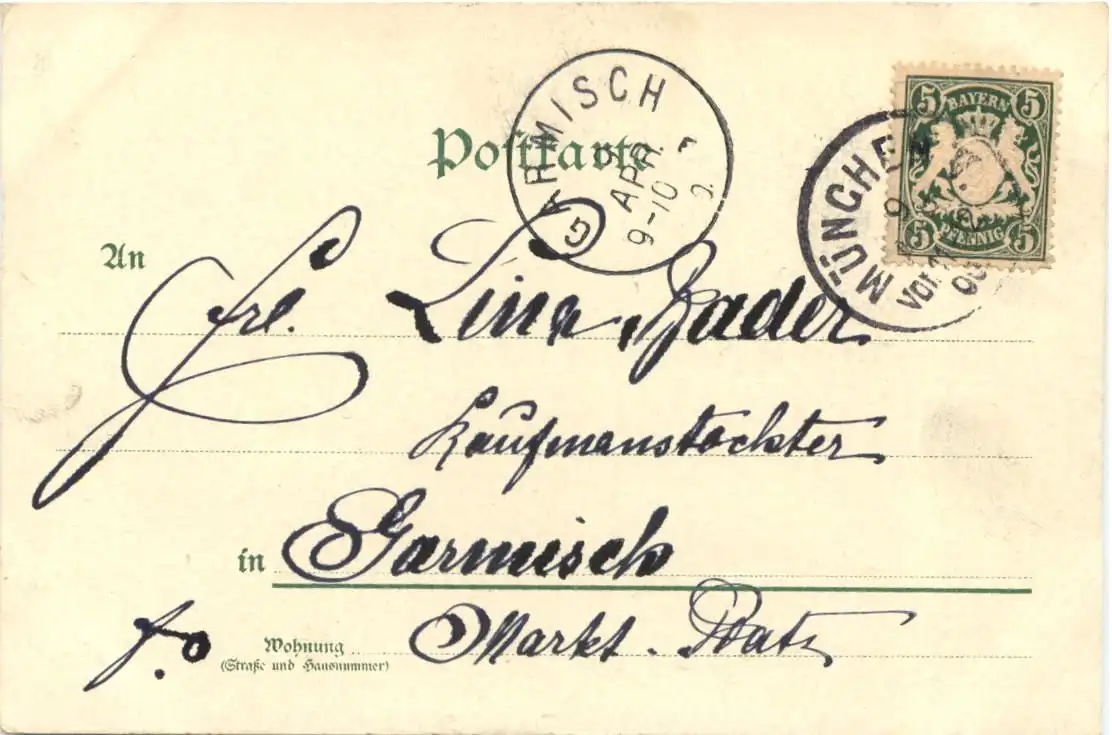 Postkarte
GARMISCH
9
APR.
9-10
5 BAYERN 5
5 PFENNIG 5
MÜNCHEN
An
Frl. Lina Bader
Kaufmanstochter
in Garmisch
Wohnung
(Straße und Hausnummer)
Markt-Platz